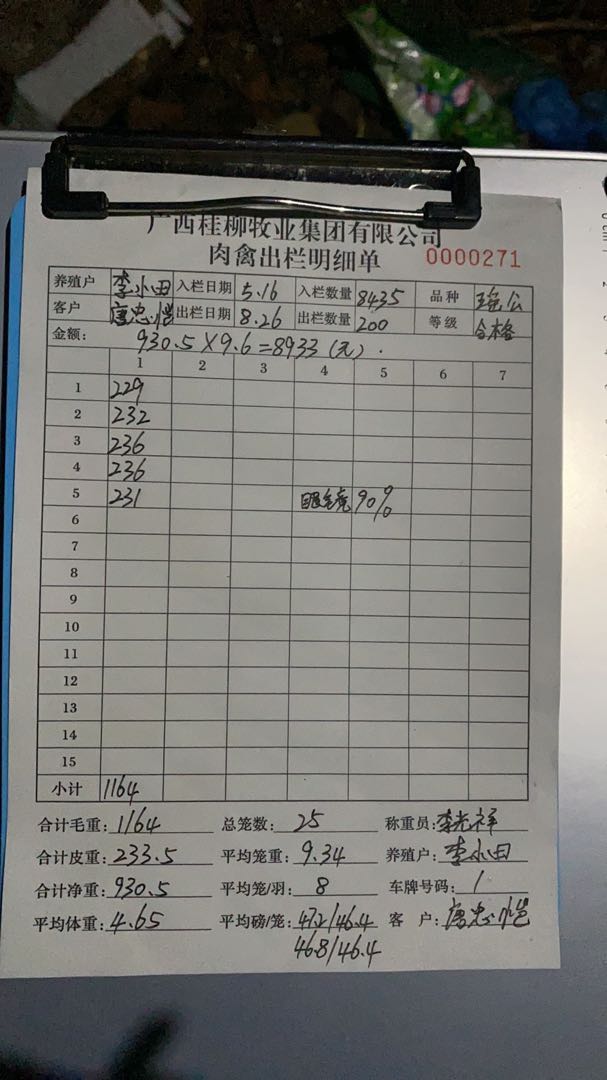 广西桂柳牧业集团有限公司
肉禽出栏明细单 0000271
养殖户 李小田 入栏日期 5.16 入栏数量 8435 品种 瑶公
客户 唐忠恺 出栏日期 8.26 出栏数量 200 等级 合格
金额: 930.5×9.6=8933(元).
1 2 3 4 5 6 7
1 229
2 232
3 236
4 236
5 231 眼镜 90%
6
7
8
9
10
11
12
13
14
15
小计 1164
合计毛重: 1164 总笼数: 25 称重员: 李光祥
合计皮重: 233.5 平均笼重: 9.34 养殖户: 李小田
合计净重: 930.5 平均笼/羽: 8 车牌号码: /
平均体重: 4.65 平均磅/笼: 47.2/46.4 客 户: 唐忠恺
46.8/46.4